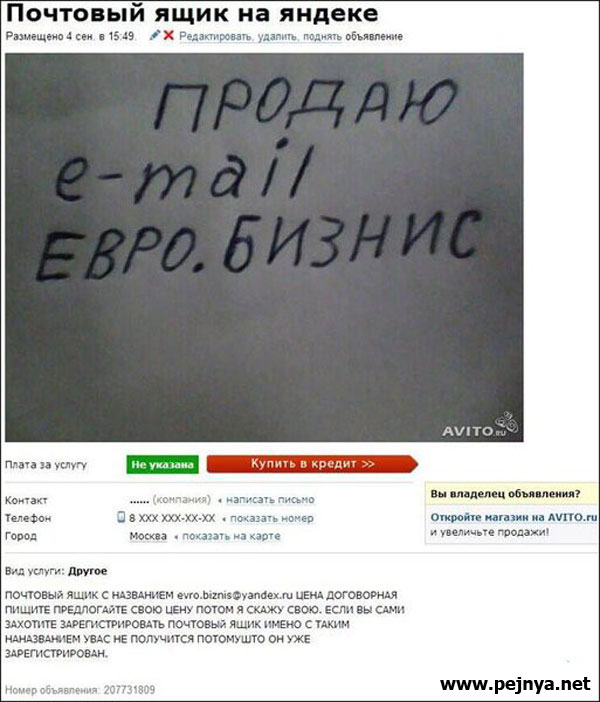 Почтовый ящик на яндеке
Размещено 4 сен. в 15:49. Редактировать, удалить, поднять объявление
ПРОДАЮ
e-mail
ЕВРО.БИЗНИС
AVITO.ru
Плата за услугу Не указана Купить в кредит >>
Контакт ...... (компания) написать письмо
Телефон 8 XXX XXX-XX-XX показать номер
Город Москва показать на карте
Вы владелец объявления?
Откройте магазин на AVITO.ru
и увеличьте продажи!
Вид услуги: Другое
ПОЧТОВЫЙ ЯЩИК С НАЗВАНИЕМ evro.biznis@yandex.ru ЦЕНА ДОГОВОРНАЯ
ПИЩИТЕ ПРЕДЛОГАЙТЕ СВОЮ ЦЕНУ ПОТОМ Я СКАЖУ СВОЮ. ЕСЛИ ВЫ САМИ
ЗАХОТИТЕ ЗАРЕГИСТРИРОВАТЬ ПОЧТОВЫЙ ЯЩИК ИМЕНО С ТАКИМ
НАНАЗВАНИЕМ УВАС НЕ ПОЛУЧИТСЯ ПОТОМУШТО ОН УЖЕ
ЗАРЕГИСТРИРОВАН.
Номер объявления: 207731809
www.pejnya.net